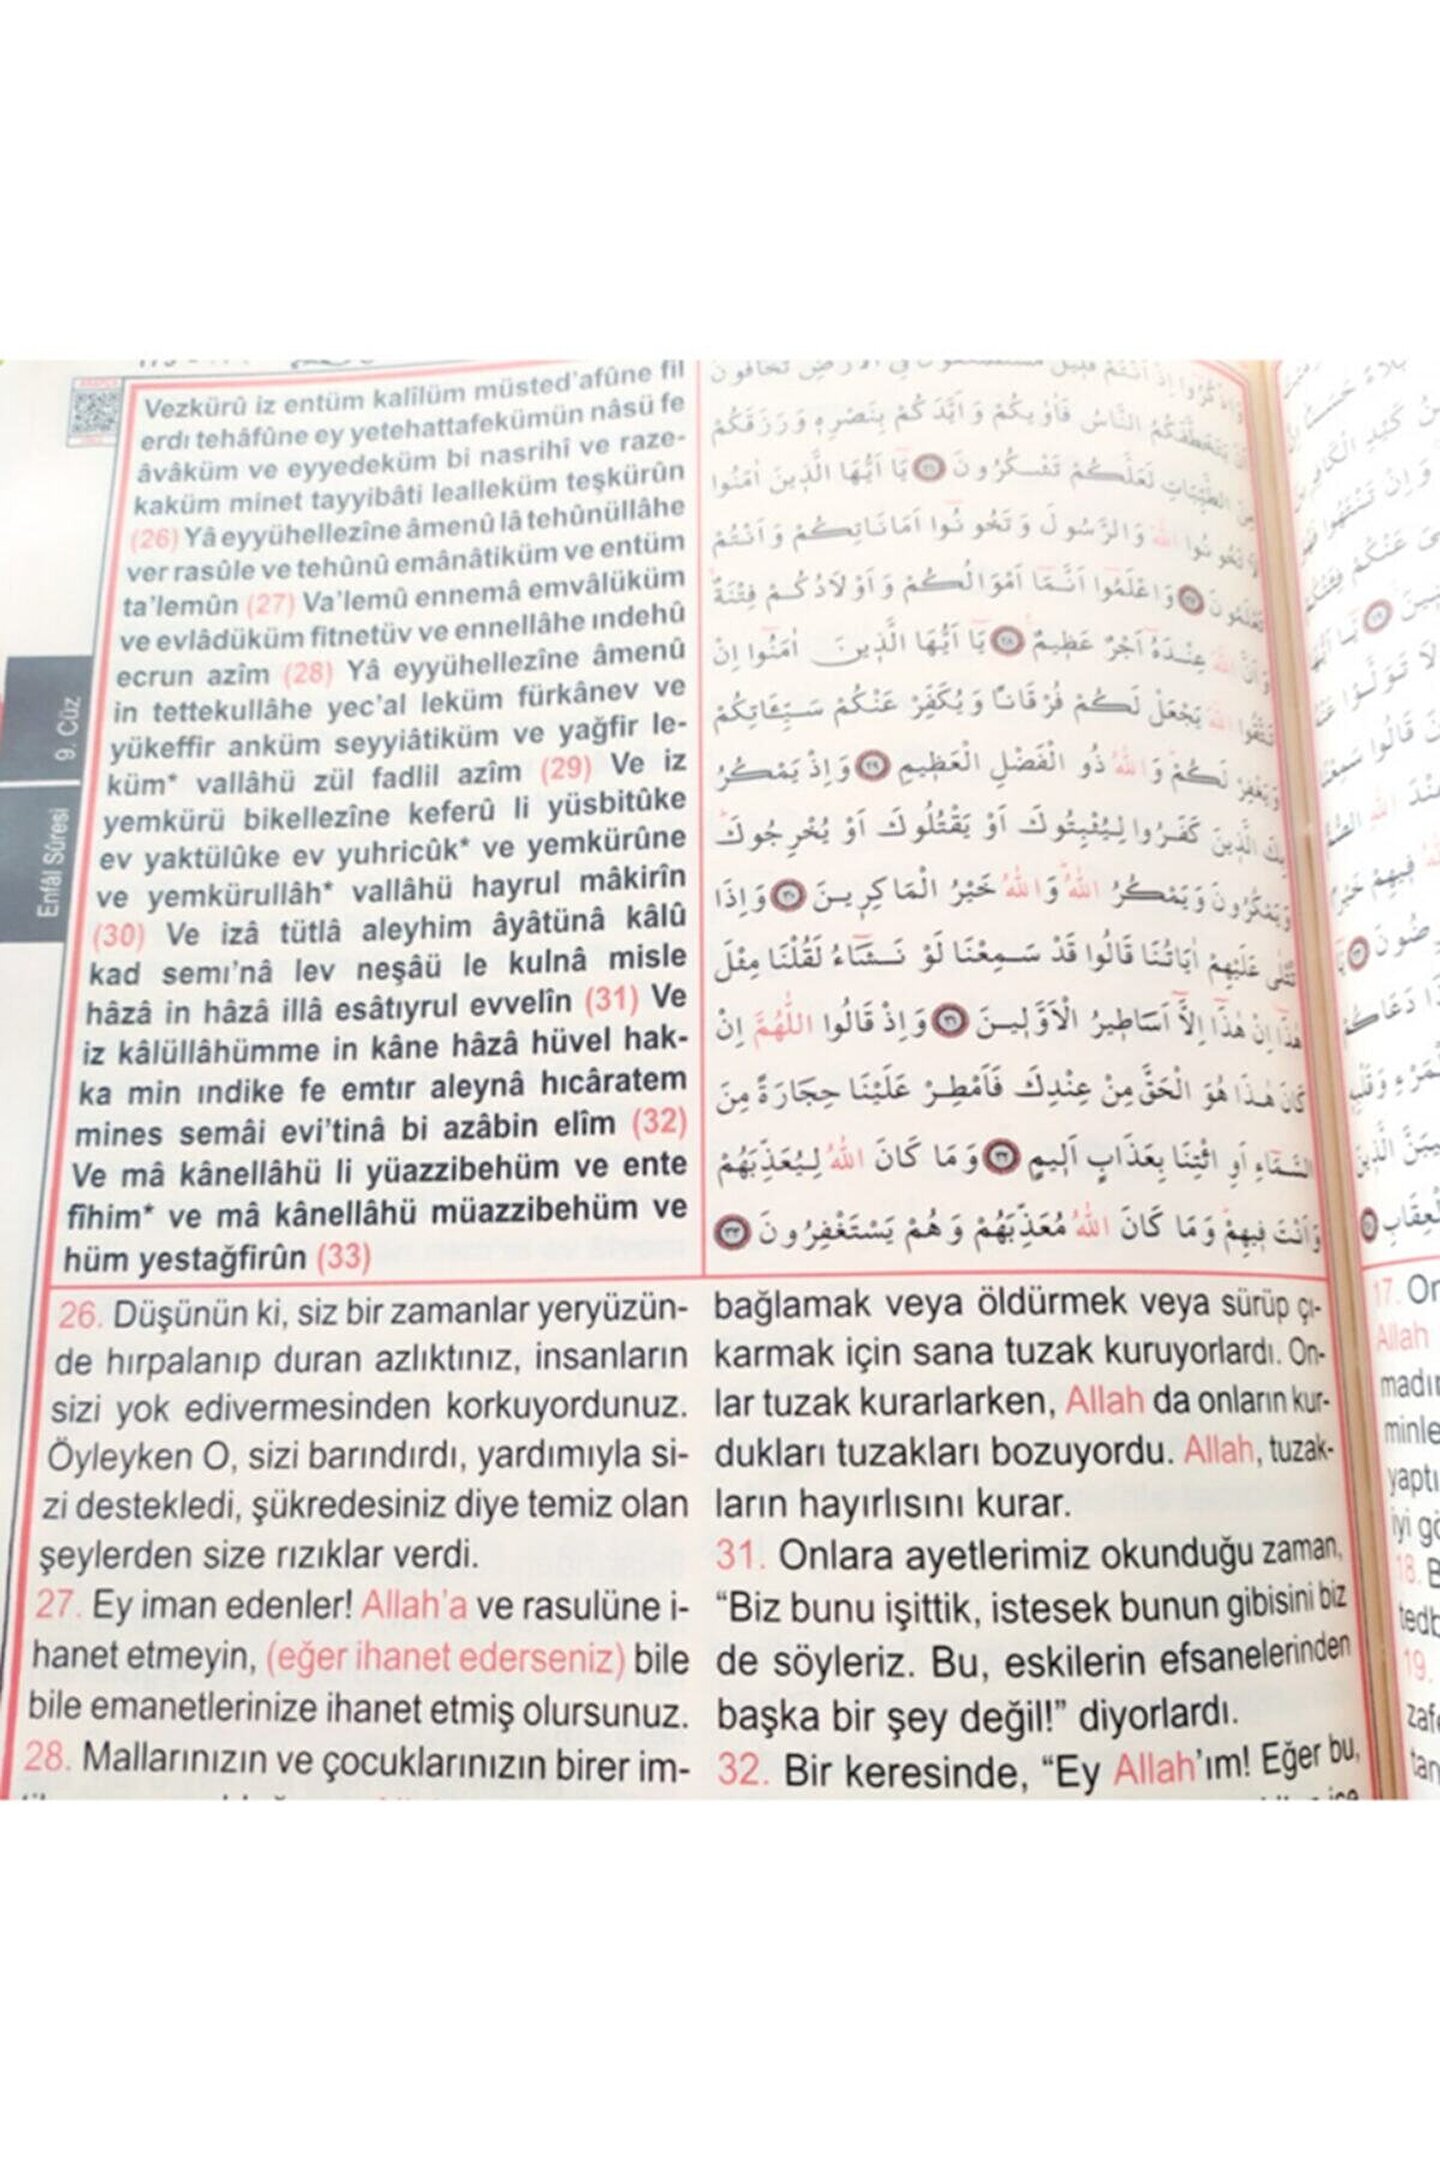 9. Cüz
Enfâl Sûresi
Vezkürû iz entüm kalîlüm müsted'afûne fil
erdı tehâfûne ey yetehattafekümün nâsü fe
âvâküm ve eyyedeküm bi nasrihî ve raze-
kaküm minet tayyibâti lealleküm teşkürûn
(26) Yâ eyyühellezîne âmenû lâ tehûnüllâhe
ver rasûle ve tehûnû emânâtiküm ve entüm
ta'lemûn (27) Va'lemû ennemâ emvâlüküm
ve evlâdüküm fitnetüv ve ennellâhe ındehû
ecrun azîm (28) Yâ eyyühellezîne âmenû
in tettekullâhe yec'al leküm fürkânev ve
yükeffir anküm seyyiâtiküm ve yağfir le-
küm* vallâhü zül fadlil azîm (29) Ve iz
yemkürü bikellezîne keferû li yüsbitûke
ev yaktülûke ev yuhricûk* ve yemkürûne
ve yemkürullâh* vallâhü hayrul mâkirîn
(30) Ve izâ tütlâ aleyhim âyâtünâ kâlû
kad semı'nâ lev neşâü le kulnâ misle
hâzâ in hâzâ illâ esâtıyrul evvelîn (31) Ve
iz kâlüllâhümme in kâne hâzâ hüvel hak-
ka min ındike fe emtır aleynâ hıcâratem
mines semâi evi'tinâ bi azâbin elîm (32)
Ve mâ kânellâhü li yüazzibehüm ve ente
fîhim* ve mâ kânellâhü müazzibehüm ve
hüm yestağfirûn (33)
النَّاسُ فَاٰوٰيكُمْ وَاَيَّدَكُمْ بِنَصْرِه۪ وَرَزَقَكُمْ
مِنَ الطَّيِّبَاتِ لَعَلَّكُمْ تَشْكُرُونَ ﴿٢٦﴾ يَٓا اَيُّهَا الَّذ۪ينَ اٰمَنُوا
لَا تَخُونُوا اللّٰهَ وَالرَّسُولَ وَتَخُونُٓوا اَمَانَاتِكُمْ وَاَنْتُمْ
تَعْلَمُونَ ﴿٢٧﴾ وَاعْلَمُٓوا اَنَّمَٓا اَمْوَالُكُمْ وَاَوْلَادُكُمْ فِتْنَةٌ
وَاَنَّ اللّٰهَ عِنْدَهُٓ اَجْرٌ عَظ۪يمٌ ﴿٢٨﴾ يَٓا اَيُّهَا الَّذ۪ينَ اٰمَنُٓوا اِنْ
تَتَّقُوا اللّٰهَ يَجْعَلْ لَكُمْ فُرْقَانًا وَيُكَفِّرْ عَنْكُمْ سَيِّـَٔاتِكُمْ
وَيَغْفِرْ لَكُمْ وَاللّٰهُ ذُو الْفَضْلِ الْعَظ۪يمِ ﴿٢٩﴾ وَاِذْ يَمْكُرُ
بِكَ الَّذ۪ينَ كَفَرُوا لِيُثْبِتُوكَ اَوْ يَقْتُلُوكَ اَوْ يُخْرِجُوكَ
وَيَمْكُرُونَ وَيَمْكُرُ اللّٰهُ وَاللّٰهُ خَيْرُ الْمَاكِر۪ينَ ﴿٣٠﴾ وَاِذَا
تُتْلٰى عَلَيْهِمْ اٰيَاتُنَا قَالُوا قَدْ سَمِعْنَا لَوْ نَشَٓاءُ لَقُلْنَا مِثْلَ
هٰذَٓا اِنْ هٰذَٓا اِلَّٓا اَسَاط۪يرُ الْاَوَّل۪ينَ ﴿٣١﴾ وَاِذْ قَالُوا اللّٰهُمَّ اِنْ
كَانَ هٰذَا هُوَ الْحَقَّ مِنْ عِنْدِكَ فَاَمْطِرْ عَلَيْنَا حِجَارَةً مِنَ
السَّمَٓاءِ اَوِ ائْتِنَا بِعَذَابٍ اَل۪يمٍ ﴿٣٢﴾ وَمَا كَانَ اللّٰهُ لِيُعَذِّبَهُمْ
وَاَنْتَ ف۪يهِمْ وَمَا كَانَ اللّٰهُ مُعَذِّبَهُمْ وَهُمْ يَسْتَغْفِرُونَ ﴿٣٣﴾
26. Düşünün ki, siz bir zamanlar yeryüzün-
de hırpalanıp duran azlıktınız, insanların
sizi yok edivermesinden korkuyordunuz.
Öyleyken O, sizi barındırdı, yardımıyla si-
zi destekledi, şükredesiniz diye temiz olan
şeylerden size rızıklar verdi.
27. Ey iman edenler! Allah'a ve rasulüne i-
hanet etmeyin, (eğer ihanet ederseniz) bile
bile emanetlerinize ihanet etmiş olursunuz.
28. Mallarınızın ve çocuklarınızın birer im-
bağlamak veya öldürmek veya sürüp çı-
karmak için sana tuzak kuruyorlardı. On-
lar tuzak kurarlarken, Allah da onların kur-
dukları tuzakları bozuyordu. Allah, tuzak-
ların hayırlısını kurar.
31. Onlara ayetlerimiz okunduğu zaman,
“Biz bunu işittik, istesek bunun gibisini biz
de söyleriz. Bu, eskilerin efsanelerinden
başka bir şey değil!” diyorlardı.
32. Bir keresinde, “Ey Allah'ım! Eğer bu,
17. On
Allah
18. B
19.